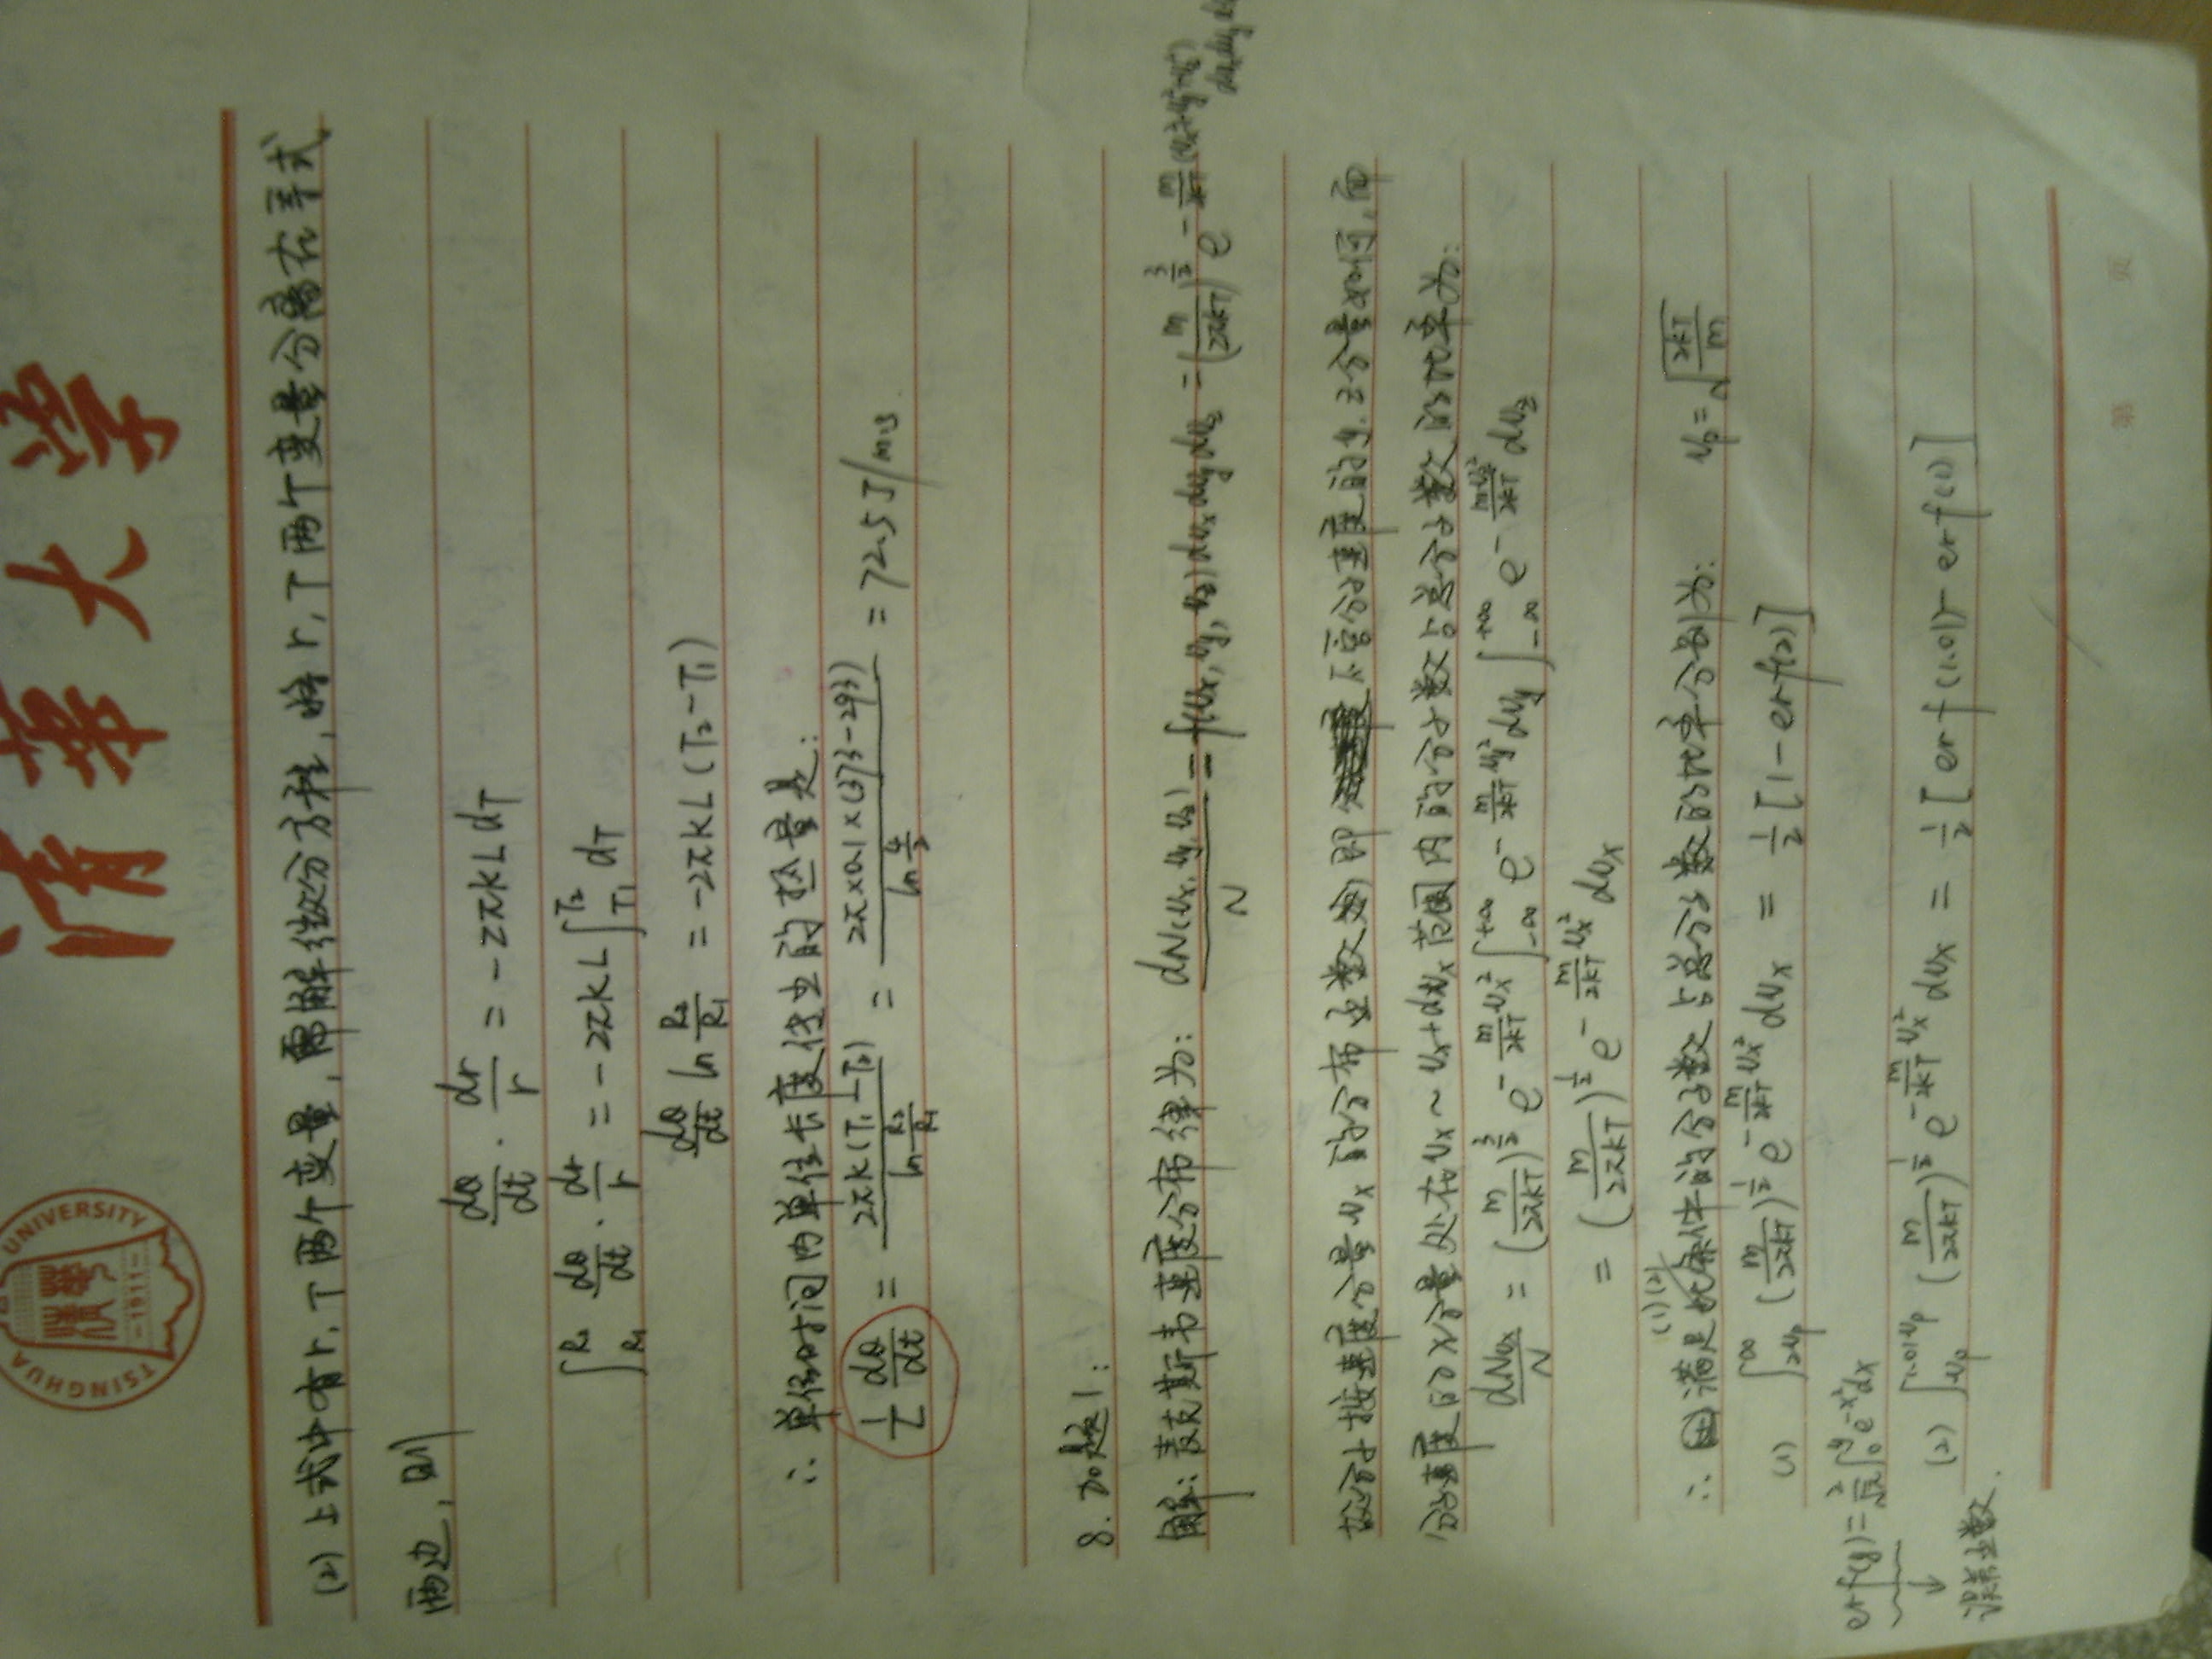 清华大学
TSINGHUA UNIVERSITY
-1911-
(2) 上式中有r, T两个变量, 需解微分方程, 将r, T两个变量分离在等式
两边, 则
dθ/dt · dr/r = -2πkL dT
∫_{R₁}^{R₂} dθ/dt · dr/r = -2πkL ∫_{T₁}^{T₂} dT
dθ/dt ln R₂/R₁ = -2πkL (T₂-T₁)
∴ 单位时间内单位长度传出的热量是:
1/L dθ/dt = 2πk(T₁-T₂) / ln R₂/R₁ = 2π×0.1×(373-293) / ln 4/2 = 72.5 J/m·s
8. 题1:
解: 麦克斯韦速度分布律为: dN(vx, vy, vz)/N = f(vx, vy, vz) dvx dvy dvz = (m/2πkT)^{3/2} e^{-m/2kT (vx²+vy²+vz²)} dvx dvy dvz
故分子按速度分量vx的分布函数即 不管分速度的y, z分量如何, 而
分速度的x分量处在vx ~ vx+dvx范围内的分子数占总分子数的比率为:
dNvx/N = (m/2πkT)^{3/2} e^{-m/2kT vx²} ∫_{-∞}^{+∞} e^{-m/2kT vy²} dvy ∫_{-∞}^{+∞} e^{-mvz²/2kT} dvz
= (m/2πkT)^{1/2} e^{-m/2kT vx²} dvx
∴ 满足(1)(2)条件的分子数占总分子数的比率分别为: vp = √(2kT/m)
(1) ∫_{2vp}^{∞} (m/2πkT)^{1/2} e^{-m/2kT vx²} dvx = 1/2 [1 - erf(2)]
erf(y) = 2/√π ∫_0^y e^{-x²} dx
(2) ∫_{vp}^{1.01vp} (m/2πkT)^{1/2} e^{-m/2kT vx²} dvx = 1/2 [erf(1.01) - erf(1)]
↓
误差函数.
第 页